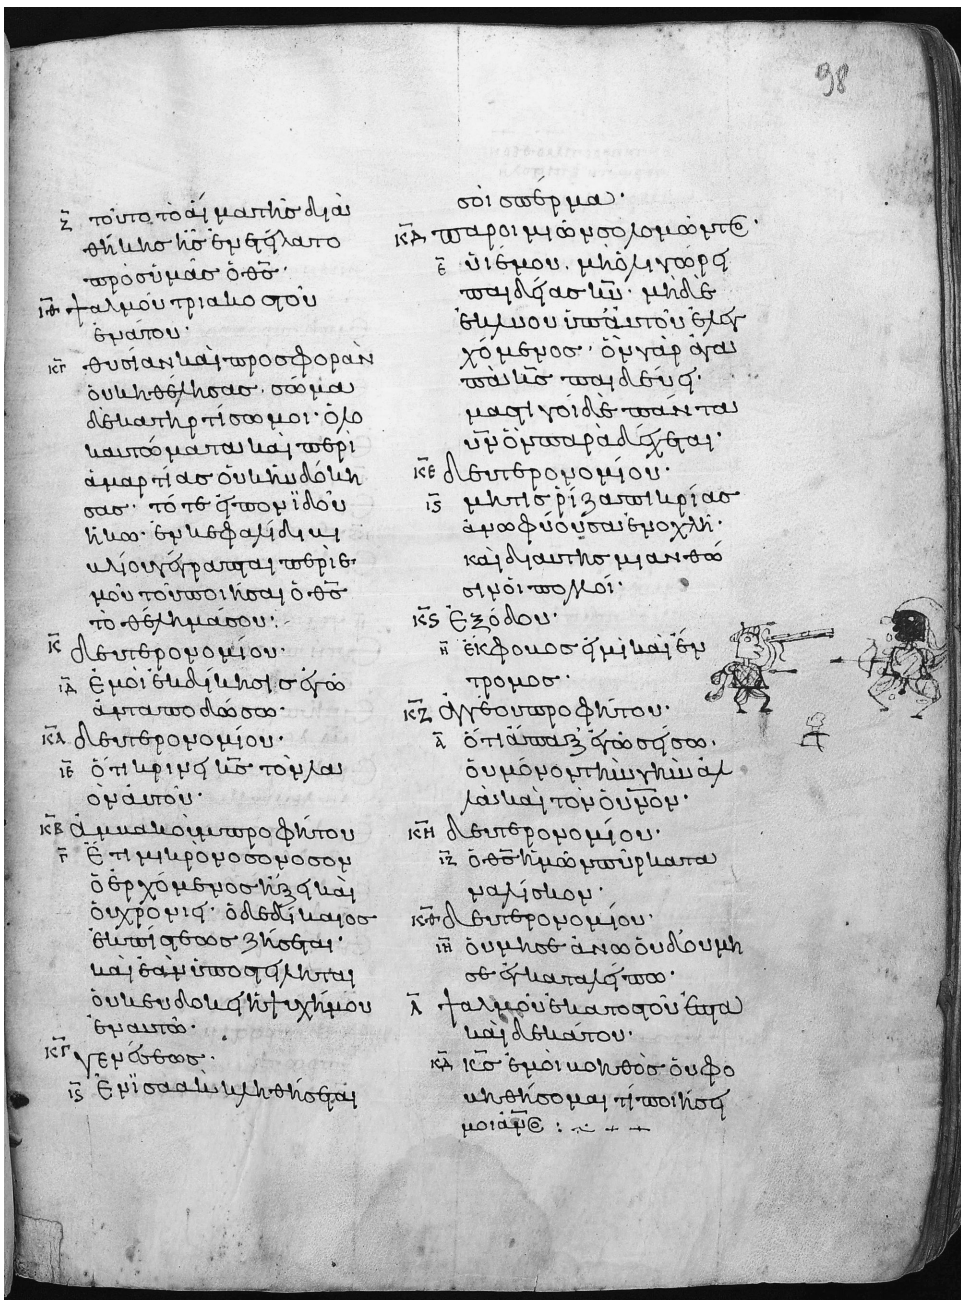 98
ζ̄ τοῦτο τὸ αἷμα τῆς δια
θήκης ἧς ἐνετείλατο
πρὸς ὑμᾶς ὁ θ̅ς̅·
ῑθ̄ ψαλμοῦ τριακοστοῦ
ἐνάτου·
κ̄γ̄ θυσίαν καὶ προσφορὰν
οὐκ ἠθέλησας· σῶμα
δὲ κατηρτίσω μοι· ὁλο
καυτώματα καὶ περὶ
ἁμαρτίας οὐκ ηὐδόκη
σας· τότε εἶπον ἰδοὺ
ἥκω· ἐν κεφαλίδι βι
βλίου γέγραπται περὶ ἐ
μοῦ τοῦ ποιῆσαι ὁ θ̅ς̅
τὸ θέλημά σου·
κ̄ δευτερονομίου·
ῑδ̄ ἐμοὶ ἐκδίκησις ἐγὼ
ἀνταποδώσω·
κ̄ᾱ δευτερονομίου·
ῑε̄ ὅτι κρινεῖ κ̅ς̅ τὸν λα
ὸν αὐτοῦ·
κ̄β̄ ἀμβακοὺμ προφήτου
γ̄ ἔτι μικρὸν ὅσον ὅσον
ὁ ἐρχόμενος ἥξει καὶ
οὐ χρονιεῖ· ὁ δὲ δίκαιος
ἐκ πίστεως ζήσεται·
καὶ ἐὰν ὑποστείληται
οὐκ εὐδοκεῖ ἡ ψυχή μου
ἐν αὐτῷ·
κ̄γ̄ γενέσεως·
ῑς̄ ἐν ἰσαὰκ κληθήσεταί
σοι σπέρμα·
κ̄δ̄ παροιμιῶν σολομῶντο(ς)·
ε̄ υἱέ μου· μὴ ὀλιγώρει
παιδείας κ̅υ̅· μηδὲ
ἐκλύου ὑπ' αὐτοῦ ἐλεγ
χόμενος· ὃν γὰρ ἀγα
πᾷ κ̅ς̅ παιδεύει·
μαστιγοῖ δὲ πάντα
υ̅ν̅ ὃν παραδέχεται·
κ̄ε̄ δευτερονομίου·
ῑς̄ μή τις ῥίζα πικρίας
ἄνω φύουσα ἐνοχλῇ·
καὶ δι' αὐτῆς μιανθῶ
σιν οἱ πολλοί·
κ̄ς̄ ἐξόδου·
η̄ ἔκφοβος εἰμὶ καὶ ἔν
τρομος·
κ̄ζ̄ ἀγγέου προφήτου·
ᾱ ὅτι ἅπαξ ἐγὼ σείσω·
οὐ μόνον τὴν γῆν ἀλ
λὰ καὶ τὸν ο̅υ̅ν̅ο̅ν̅·
κ̄η̄ δευτερονομίου·
ῑζ̄ ὁ θ̅ς̅ ἡμῶν πῦρ κατα
ναλίσκον·
κ̄θ̄ δευτερονομίου·
ῑη̄ οὐ μή σε ἀνῶ οὐδ' οὐ μή
σε ἐγκαταλείπω·
λ̄ ψαλμοῦ ἑκατοστοῦ ἑπτα
καιδεκάτου·
κ̄δ̄ κ̅ς̅ ἐμοὶ βοηθὸς οὐ φο
βηθήσομαι τί ποιήσει
μοι ἄν̅ο̅(ς)